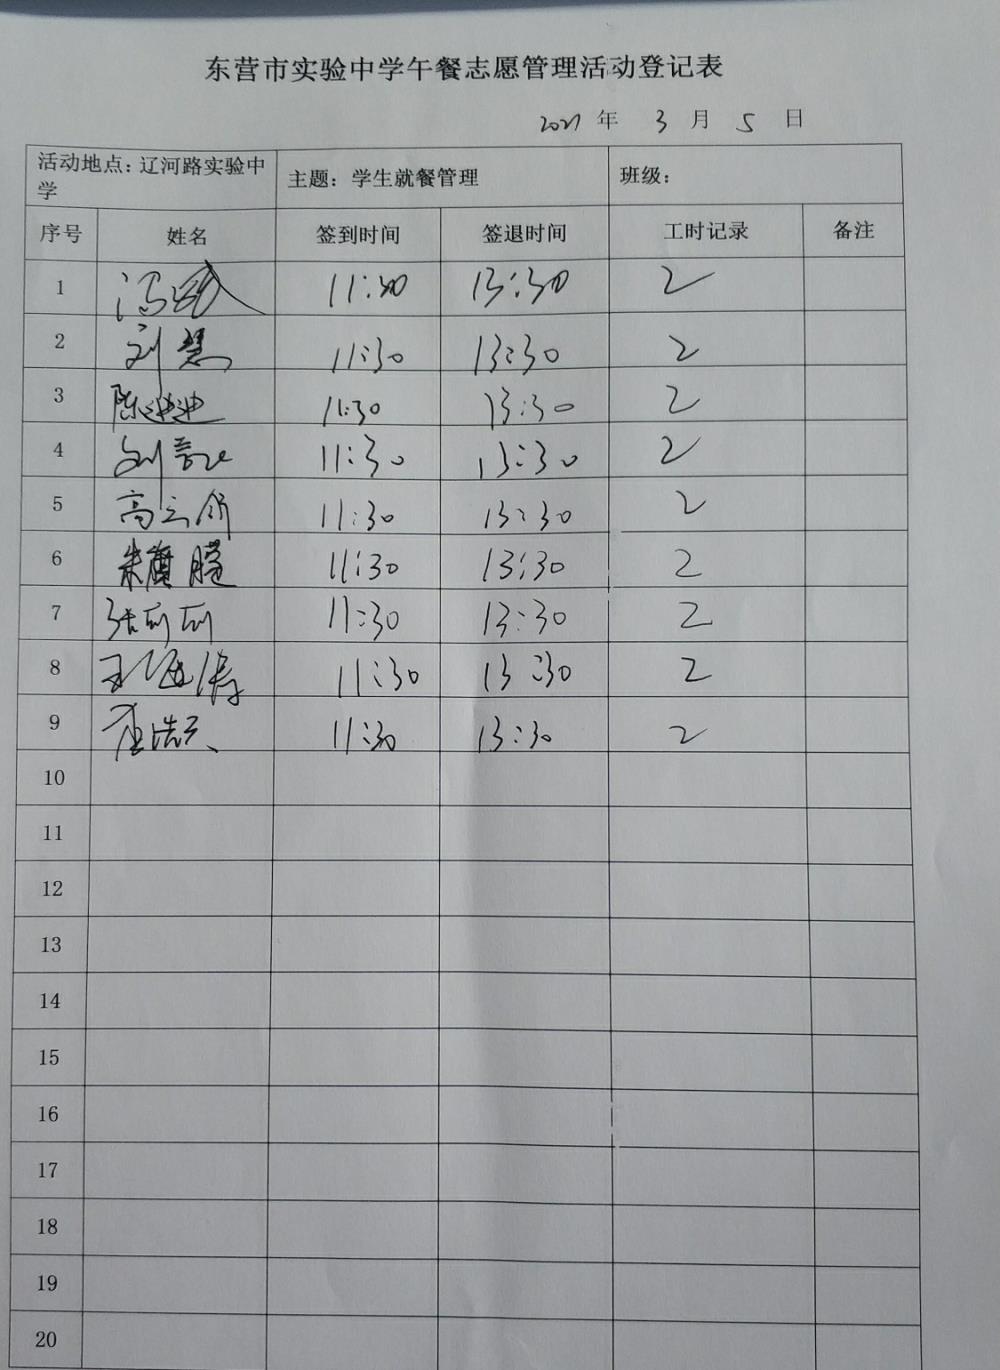 东营市实验中学午餐志愿管理活动登记表
2021 年 3 月 5 日
活动地点：辽河路实验中学 主题：学生就餐管理 班级：
序号 姓名 签到时间 签退时间 工时记录 备注
1 冯 11:30 13:30 2
2 刘慧 11:30 13:30 2
3 陈迪迪 11:30 13:30 2
4 刘 11:30 13:30 2
5 高云 11:30 13:30 2
6 朱 腾 11:30 13:30 2
7 张 11:30 13:30 2
8 王海涛 11:30 13:30 2
9 浩天 11:30 13:30 2
10
11
12
13
14
15
16
17
18
19
20